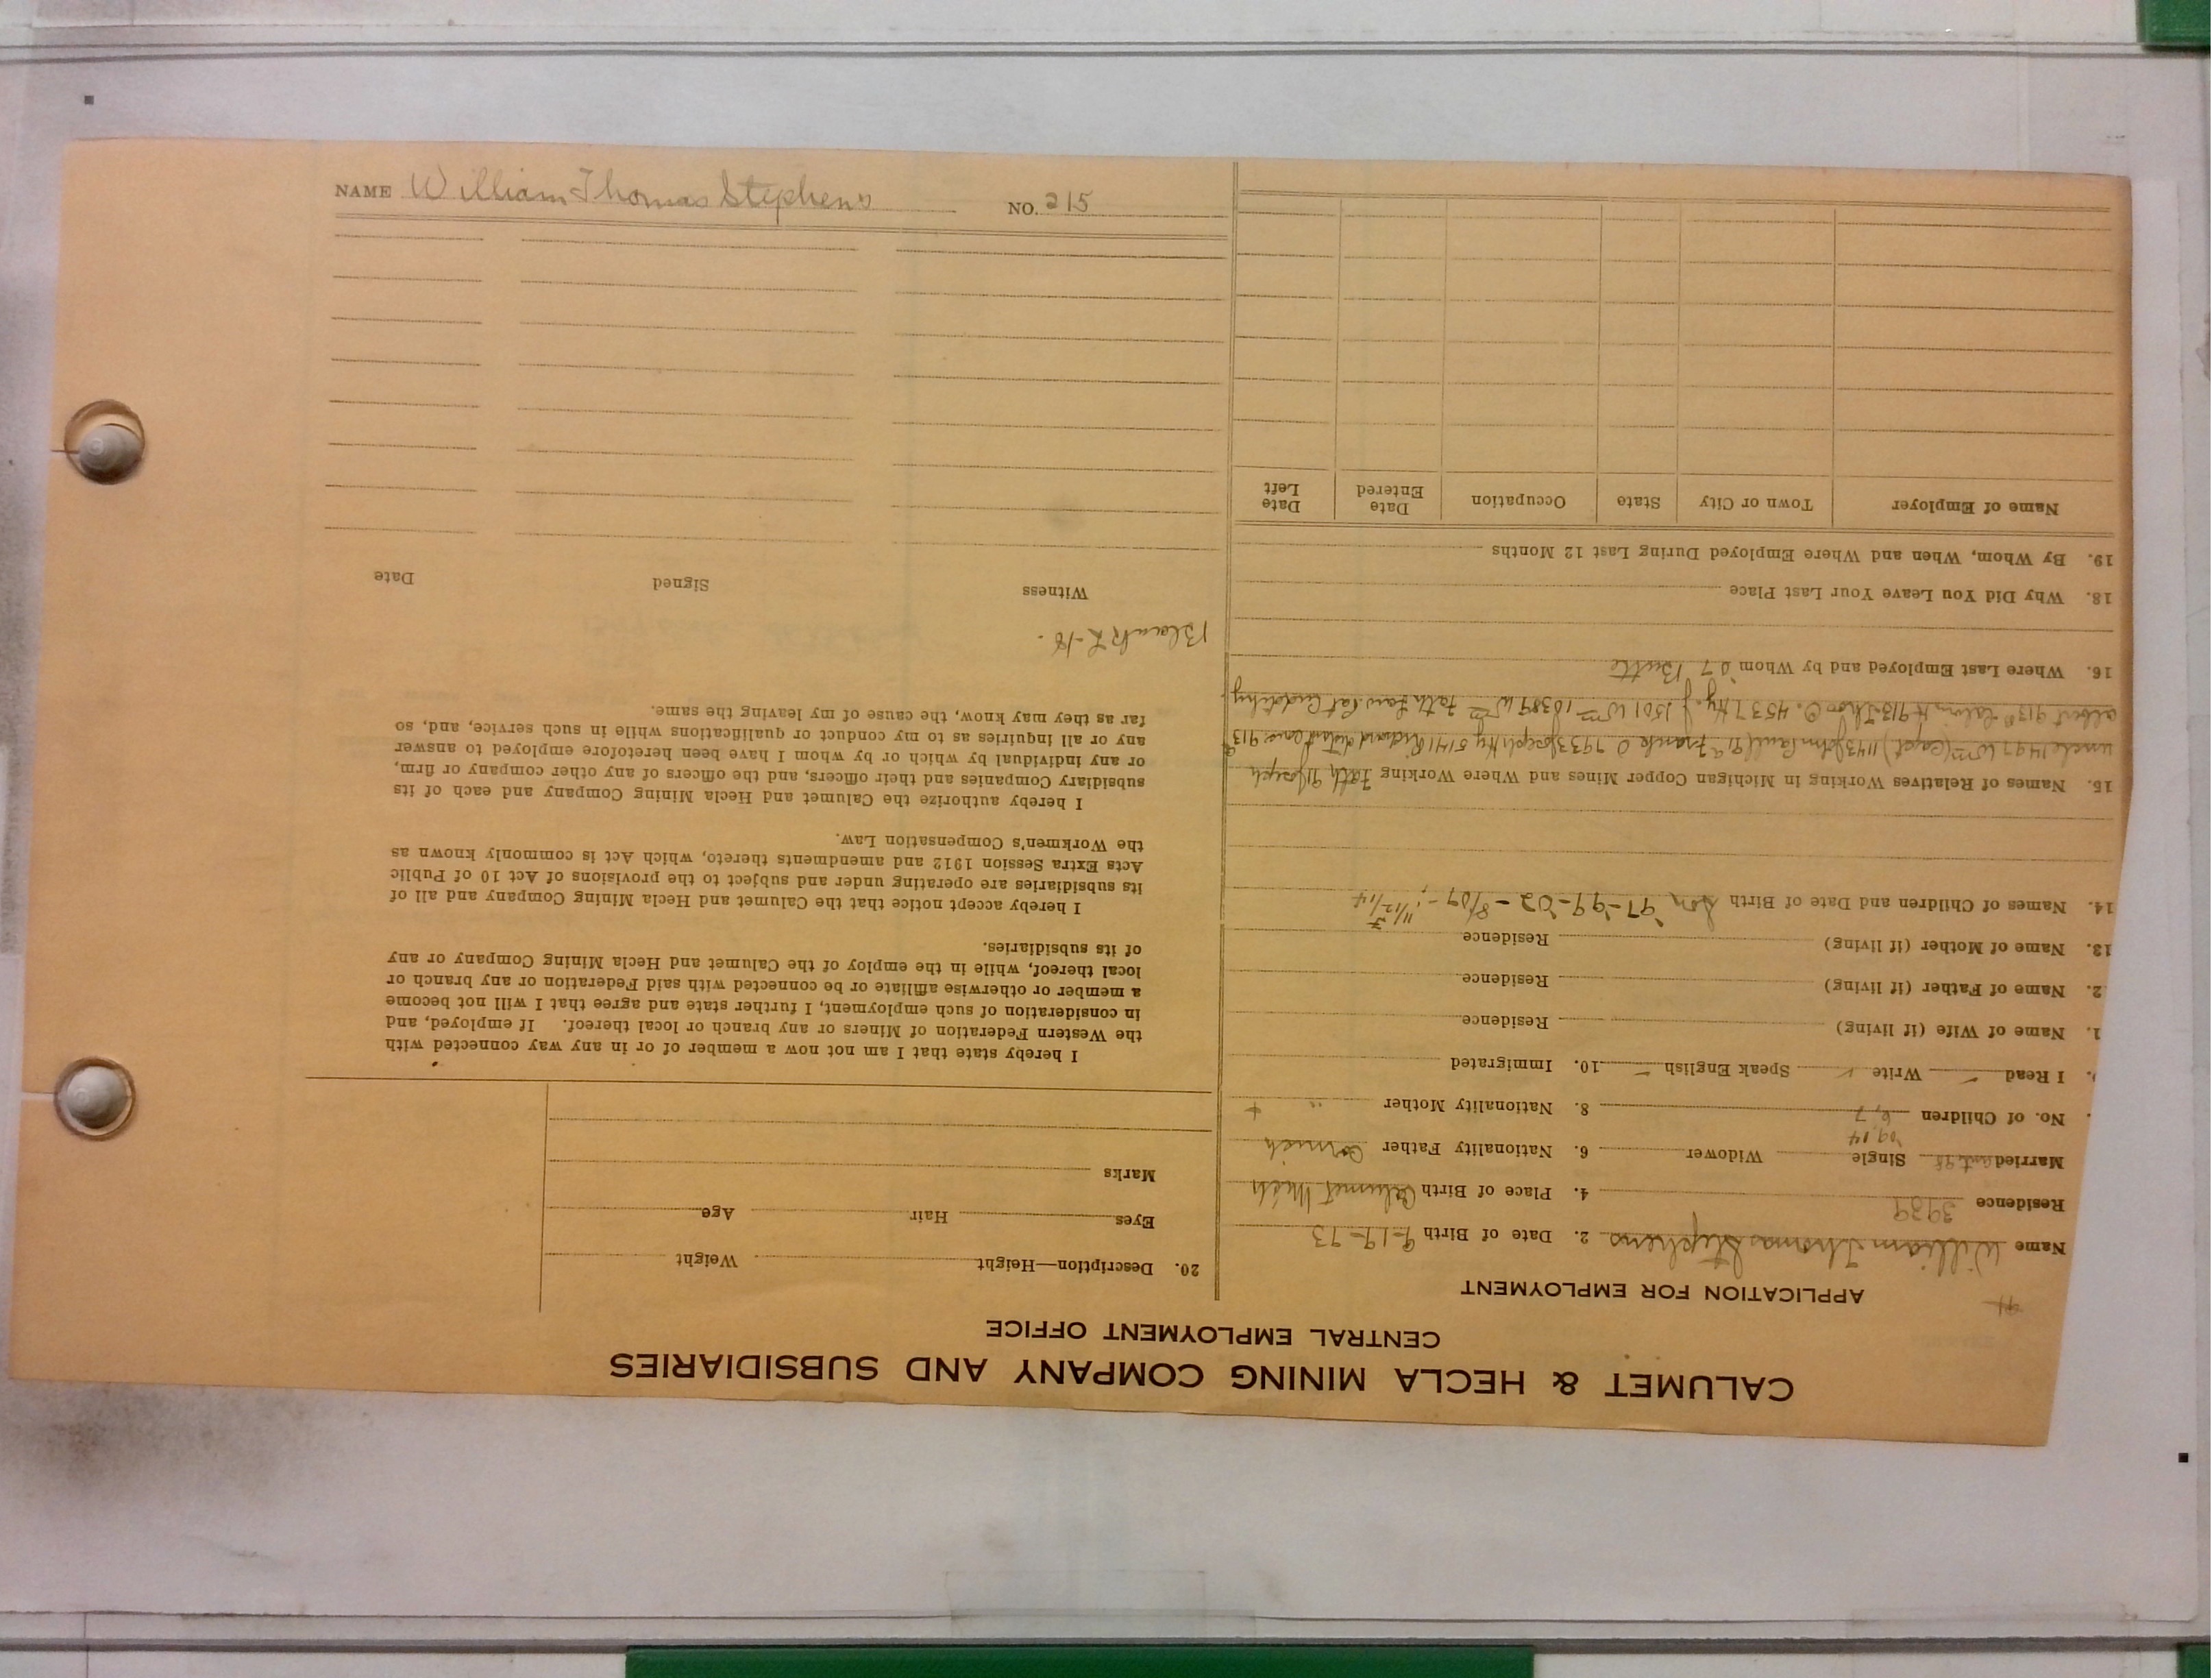 NAME William Thomas Stephens NO. 215
CALUMET & HECLA MINING COMPANY AND SUBSIDIARIES
CENTRAL EMPLOYMENT OFFICE
APPLICATION FOR EMPLOYMENT
Name William Thomas Stephens 2. Date of Birth 9-19-73
Residence 3939 4. Place of Birth Calumet Mich
Married Single Widower 6. Nationality Father Cornish
'09, '14
No. of Children 6, 7 8. Nationality Mother "
I Read ✓ Write ✓ Speak English ✓ 10. Immigrated
1. Name of Wife (if living) Residence
2. Name of Father (if living) Residence
13. Name of Mother (if living) Residence
14. Names of Children and Date of Birth Son '97-'99-'02-8/'09- 11/12/14
15. Names of Relatives Working in Michigan Copper Mines and Where Working Fath 91 Joseph
uncle 1497 Wm (Capt) 1143 John Paull 919 Frank O 7933 Joseph Hy 5141 Richard distant cous 913
Albert 913 Calvin H 913 Thos O. 4537 Hy. J. 1501 Wm 10389 Wm Fath Law Pat
16. Where Last Employed and by Whom '07 Butte
18. Why Did You Leave Your Last Place
19. By Whom, When and Where Employed During Last 12 Months
Name of Employer Town or City State Occupation Date Entered Date Left
20. Description—Height Weight
Eyes Hair Age
Marks
I hereby state that I am not now a member of or in any way connected with
the Western Federation of Miners or any branch or local thereof. If employed, and
in consideration of such employment, I further state and agree that I will not become
a member or otherwise affiliate or be connected with said Federation or any branch or
local thereof, while in the employ of the Calumet and Hecla Mining Company or any
of its subsidiaries.
I hereby accept notice that the Calumet and Hecla Mining Company and all of
its subsidiaries are operating under and subject to the provisions of Act 10 of Public
Acts Extra Session 1912 and amendments thereto, which Act is commonly known as
the Workmen's Compensation Law.
I hereby authorize the Calumet and Hecla Mining Company and each of its
subsidiary Companies and their officers, and the officers of any other company or firm,
or any individual by which or by whom I have been heretofore employed to answer
any or all inquiries as to my conduct or qualifications while in such service, and, so
far as they may know, the cause of my leaving the same.
Blank L-18.
Witness Signed Date